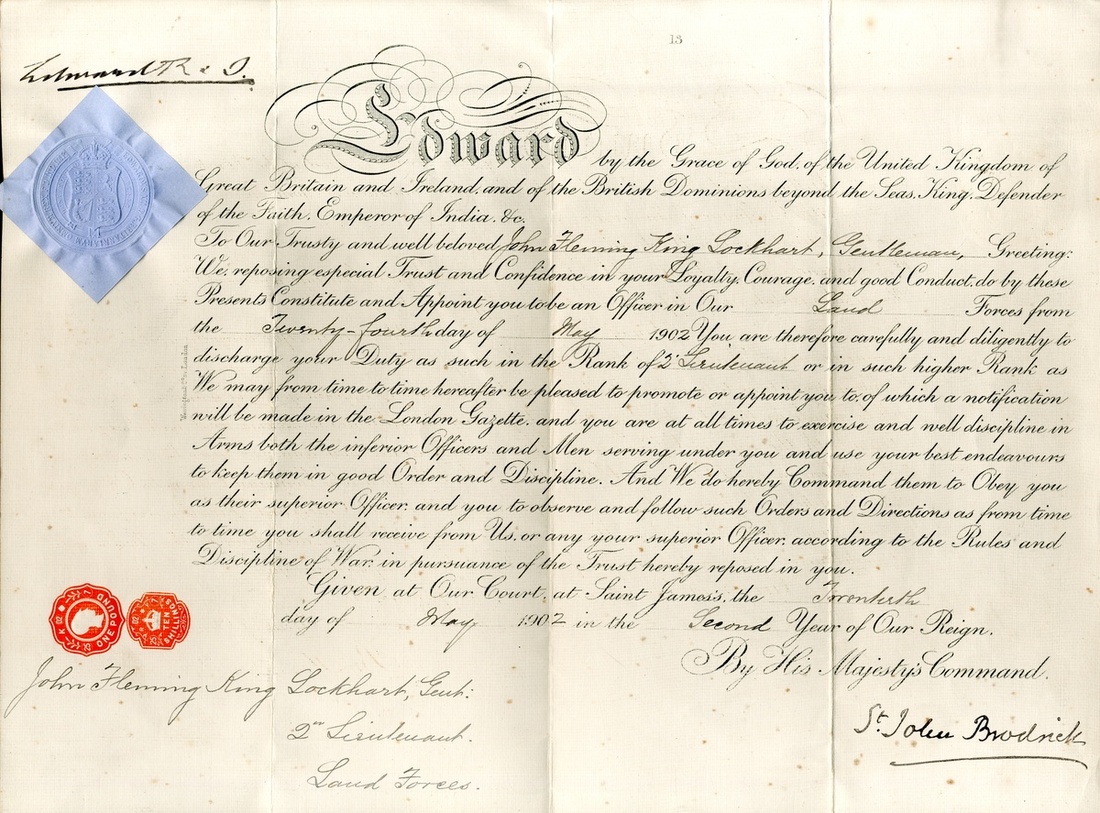 13
Edward R & I.
Edward by the Grace of God, of the United Kingdom of
Great Britain and Ireland, and of the British Dominions beyond the Seas, King, Defender
of the Faith, Emperor of India, &c.
To Our Trusty and well beloved John Fleming King Lockhart, Gentleman, Greeting:
We, reposing especial Trust and Confidence in your Loyalty, Courage, and good Conduct, do by these
Presents Constitute and Appoint you to be an Officer in Our Land Forces from
the Twenty-fourth day of May 1902 You are therefore carefully and diligently to
discharge your Duty as such in the Rank of 2nd Lieutenant or in such higher Rank as
We may from time to time hereafter be pleased to promote or appoint you to, of which a notification
will be made in the London Gazette, and you are at all times to exercise and well discipline in
Arms both the inferior Officers and Men serving under you and use your best endeavours
to keep them in good Order and Discipline. And We do hereby Command them to Obey you
as their superior Officer, and you to observe and follow such Orders and Directions as from time
to time you shall receive from Us, or any your superior Officer, according to the Rules and
Discipline of War, in pursuance of the Trust hereby reposed in you.
Given, at Our Court, at Saint James's, the Twentieth
day of May 1902 in the Second Year of Our Reign.
By His Majesty's Command.
ONE POUND
TEN SHILLINGS
John Fleming King Lockhart, Gent:
2nd Lieutenant.
Land Forces.
St. John Brodrick